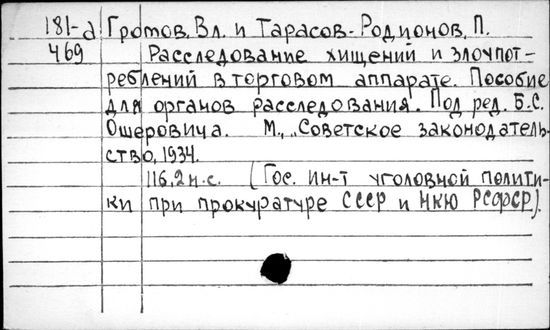 181-а Громов, Вл. и Тарасов-Родионов, П.
469 Расследование хищений и злоупот-
реблений в торговом аппарате. Пособие
для органов расследования. Под ред. Б.С.
Ошеровича. М., „Советское законодатель-
ство, 1934.
116, 2 н.с. (Гос. ин-т уголовной полити-
ки при прокуратуре СССР и НКЮ РСФСР).